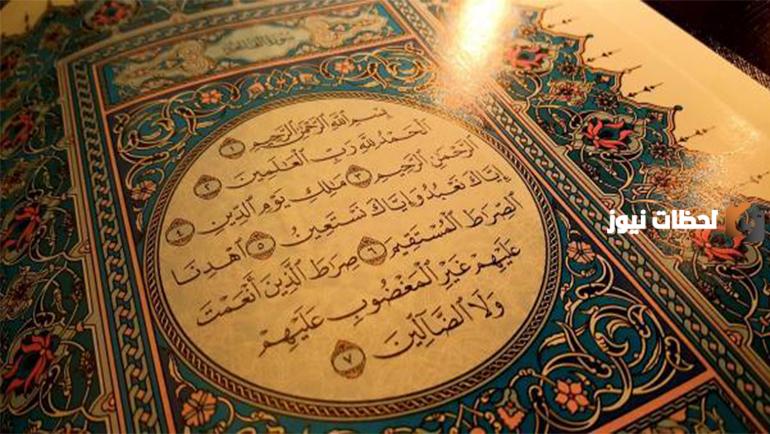 سُورَةُ الفَاتِحَةِ
بِسْمِ ٱللَّهِ ٱلرَّحْمَٰنِ ٱلرَّحِيمِ ١
ٱلْحَمْدُ لِلَّهِ رَبِّ ٱلْعَٰلَمِينَ ٢
ٱلرَّحْمَٰنِ ٱلرَّحِيمِ ٣ مَٰلِكِ يَوْمِ ٱلدِّينِ ٤
إِيَّاكَ نَعْبُدُ وَإِيَّاكَ نَسْتَعِينُ ٥ ٱهْدِنَا
ٱلصِّرَٰطَ ٱلْمُسْتَقِيمَ ٦ صِرَٰطَ ٱلَّذِينَ أَنْعَمْتَ
عَلَيْهِمْ غَيْرِ ٱلْمَغْضُوبِ عَلَيْهِمْ
وَلَا ٱلضَّآلِّينَ ٧
لحظات نيوز